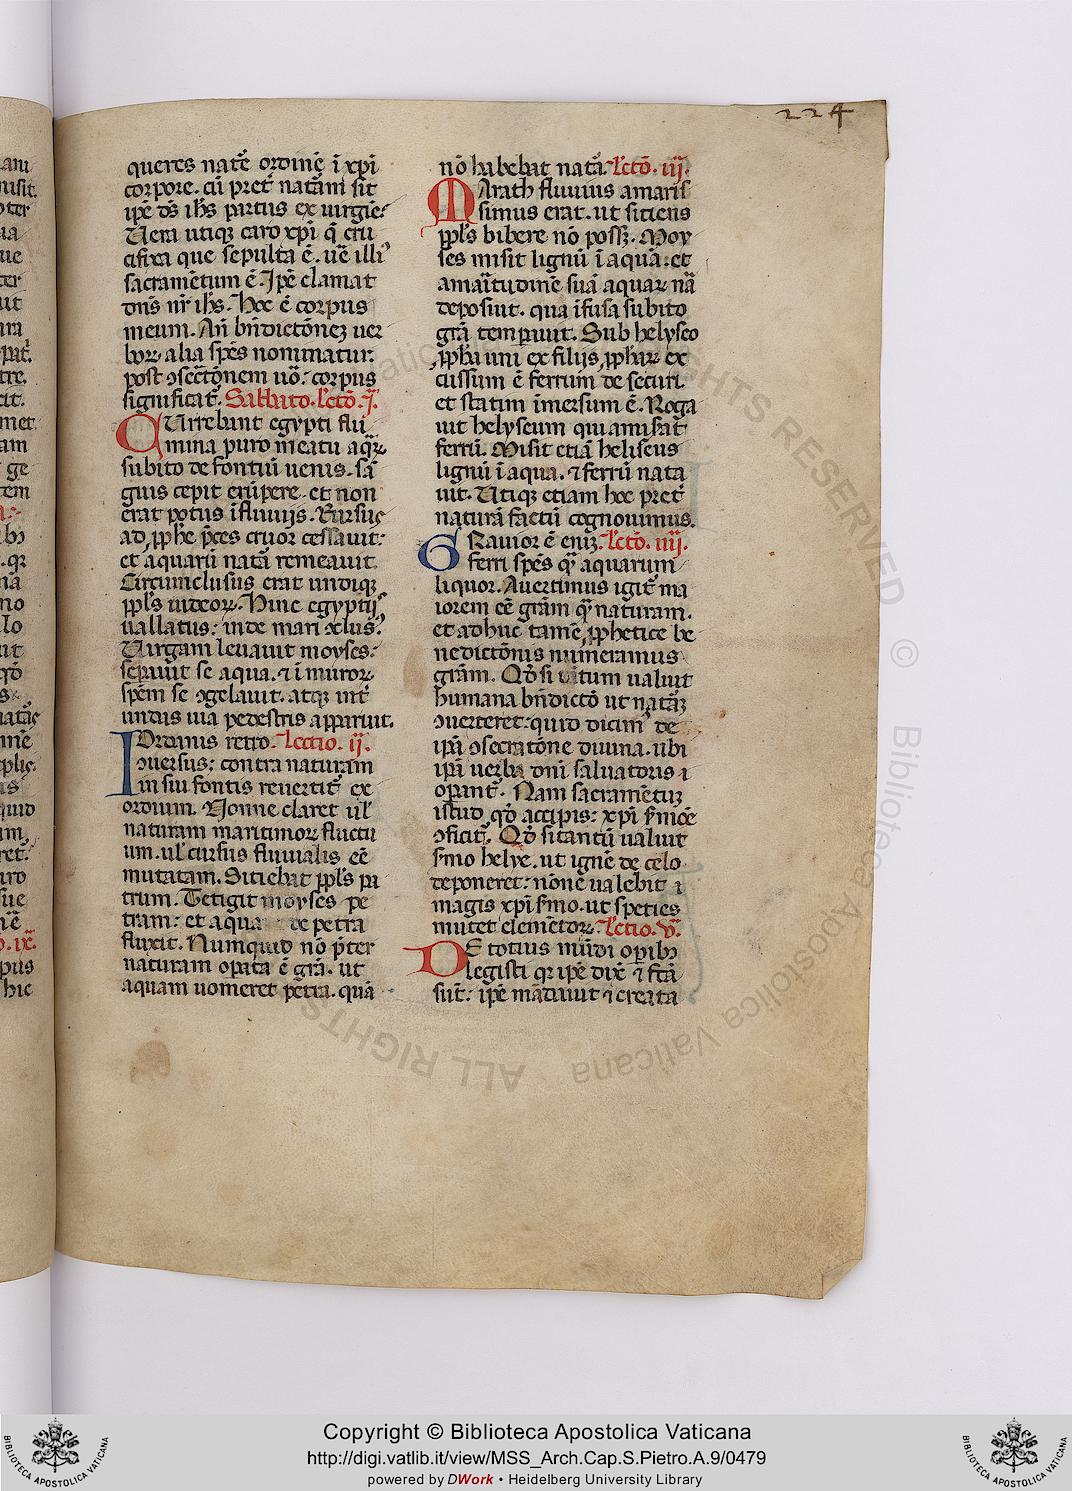 224
queres natē ordinē ī xp̄i
corpore. cū pret̄ natām sit
ip̄e d̄s ih̄s partus ex uirgīe.
Uera utiq; caro xp̄i q̄ cru
cifixa que sepulta ē. ūe illi'
sacramētum ē. Ip̄e clamat
dn̄s nr̄ ih̄s. Hoc ē corpus
meum. Añ bn̄dictōnez uer
boꝝ alia sp̄es nominatur.
post ɔsecr̄tōnem uō: corpus
significat̄. Sabbato. lc̄tō. j.
CUrrebant egypti flu
mina puro meatu aqꝝ.
subito de fontiū uenis. sā
guis cepit erūpere. et non
erat potus ī fluuijs. Rursus
ad ꝓphe p̄ces cruor cessauit:
et aquarū natā remeauit.
Circumclusus erat undiq;
pp̄ls iudeoꝝ. Hinc egyptijs
uallatus: inde mari ɔclus'.
Uirgam leuauit moyses:
sepauit se aqua. ⁊ ī muroꝝ
sp̄em se ɔgelauit. atq; int̄
undas uia pedestris apparuit.
IOrdanis retro. Lectio. ij.
ɔuersus: contra naturam
in sui fontis reuertit̄ ex
ordium. Nonne claret ul̄
naturam maritimoꝝ fluctu
um. ul̄ cursus fluuialis eē
mutatam. Sitiebat pp̄ls pa
trum. Tetigit moyses pe
tram: et aqua de petra
fluxit. Numquid nō p̄ter
naturam opata ē grā. ut
aquam uomeret petra. quā
nō habebat natā. lc̄tō. iij.
MArath fluuius amaris
simus erat. ut sitiens
pp̄ls bibere nō poss;. Moy
ses misit lignū ī aquā: et
amāitudinē suā aquaꝝ nā
deposuit. quā īfusa subito
grā tempauit. Sub helyseo
ꝓph̄a uni ex filijs ꝓphaꝝ ex
cussum ē ferrum de securi.
et statim īmersum ē. Roga
uit helyseum qui amisat̄
ferrū. Misit etiā heliseus
lignū ī aqua. ⁊ ferrū nata
uit. Utiq; etiam hoc pret̄
naturā factū cognouimus.
GRauior ē eni;. lc̄tō. iiij.
ferri sp̄es qͣ aquarum
liquor. Auertimus igit̄ ma
iorem eē grām qͣ naturam.
et adhuc tamē ꝓphetice be
nedictōnis numeramus
grām. Qd̄ si tātum ualuit
humana bn̄dictō ut natāz
ɔuerteret: quid dicim' de
ip̄a ɔsecratōne diuina. ubi
ip̄a uerba dn̄i saluatoris
opant̄. Nam sacramētuz
istud qd̄ accipis: xp̄i s̄mōe
ɔficit̄. Qd̄ si tantū ualuit
s̄mo helye. ut ignē de celo
deponeret: nōne ualebit
magis xp̄i s̄mo. ut species
mutet elemētoꝝ. Lectio. v̄.
DE totius mūdi opib;
legisti qꝛ ip̄e dix̄ ⁊ fc̄ā
sūt: ip̄e mādauit ⁊ creata
Copyright © Biblioteca Apostolica Vaticana
http://digi.vatlib.it/view/MSS_Arch.Cap.S.Pietro.A.9/0479
powered by DWork • Heidelberg University Library